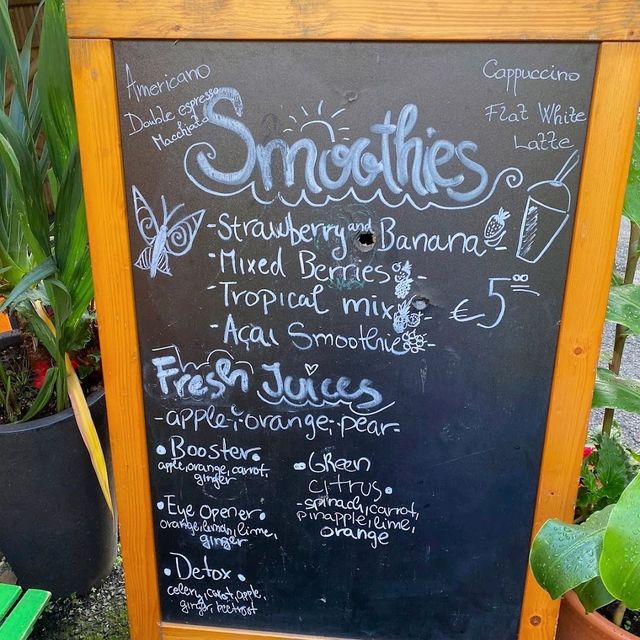 Americano
Double espresso
Macchiato
Cappuccino
Flat White
Latte
Smoothies
-Strawberry and Banana-
-Mixed Berries-
-Tropical mix-
-Açai Smoothie-
€5,00
Fresh Juices
-apple-orange-pear-
•Booster•
apple,orange,carrot,
ginger
•Eye Opener•
orange,lemon,lime,
ginger
•Detox•
celery,carrot,apple,
ginger,beetroot
•Green
citrus•
-spinach,carrot,
pinapple,lime,
orange